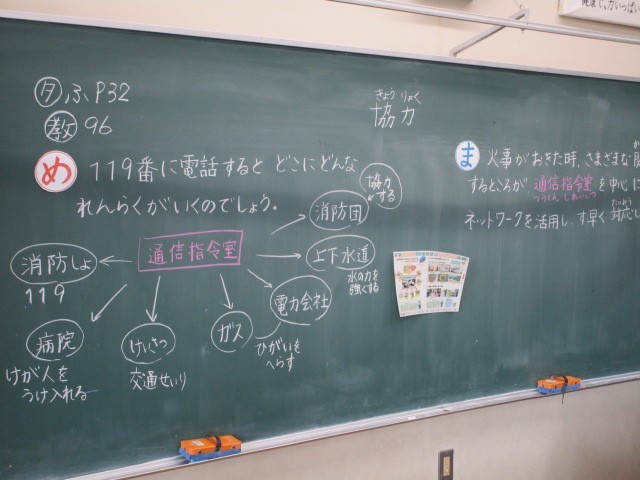 タ ふP32
教 96
きょう りょく
協力
め 119番に電話すると どこにどんな
れんらくがいくのでしょう。
協力
する
消防団
通信指令室
上下水道
水の力を
強くする
消防しょ
119
電力会社
ガス
ひがいを
へらす
けいさつ
交通せいり
病院
けが人を
うけ入れる
ま 火事がおきた時、さまざまな
するところが、通信指令室を中心に
つうしん しれいしつ
たいおう
ネットワークを活用し、す早く対応し